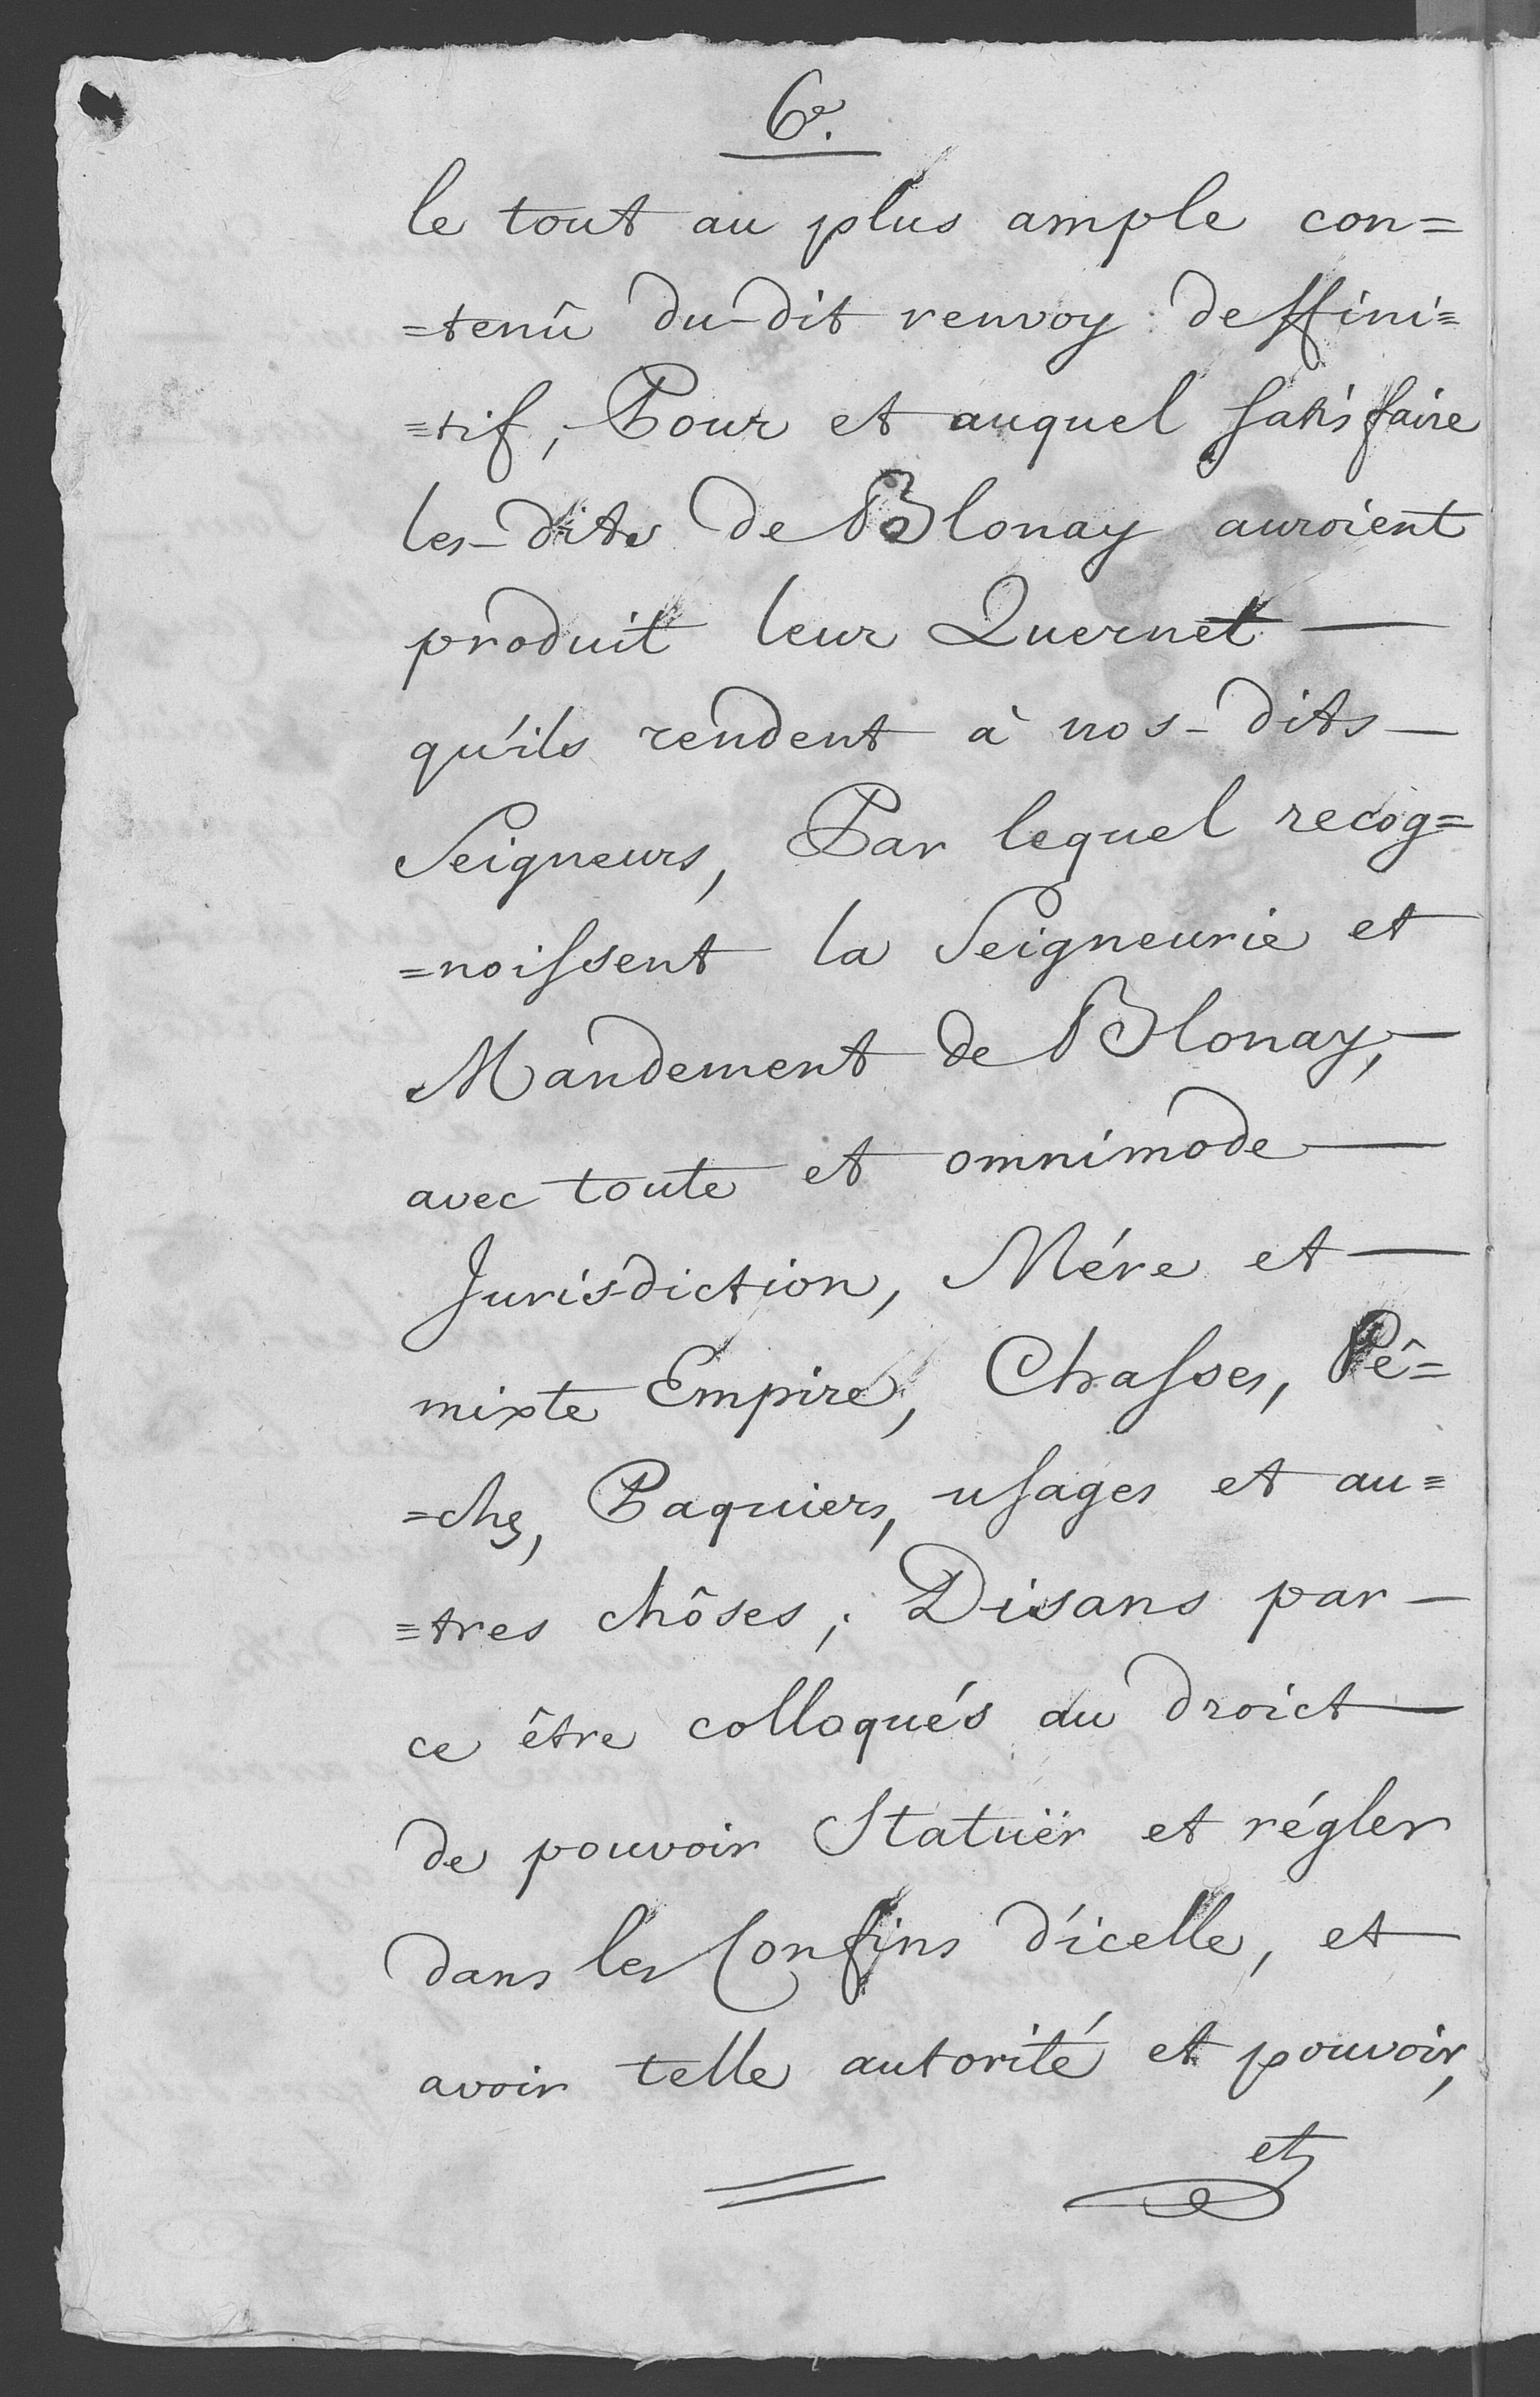 6e.
le tout au plus ample con=
=tenû du-dit renvoy deffini=
=tif, Pour et auquel satisfaire
les-dits de Blonay auroient
produit leur Quernet —
qu'ils rendent à nos-dits —
Seigneurs, Par lequel recog=
=noissent la Seigneurie et
Mandement de Blonay, —
avec toute et omnimode —
Jurisdiction, Mére et —
mixte Empire, Chasses, Pê=
=che, Paquiers, usages et au=
=tres chôses; Disans par —
ce être colloqués au droict —
de pouvoir Statuër et régler
dans les Confins d'icelle, et
avoir telle autorité et pouvoir,
et